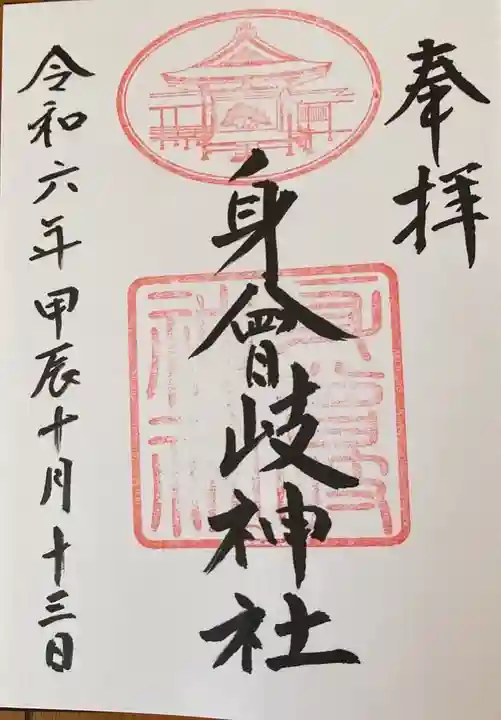 奉拝
身曾岐神社
令和六年甲辰十月十三日